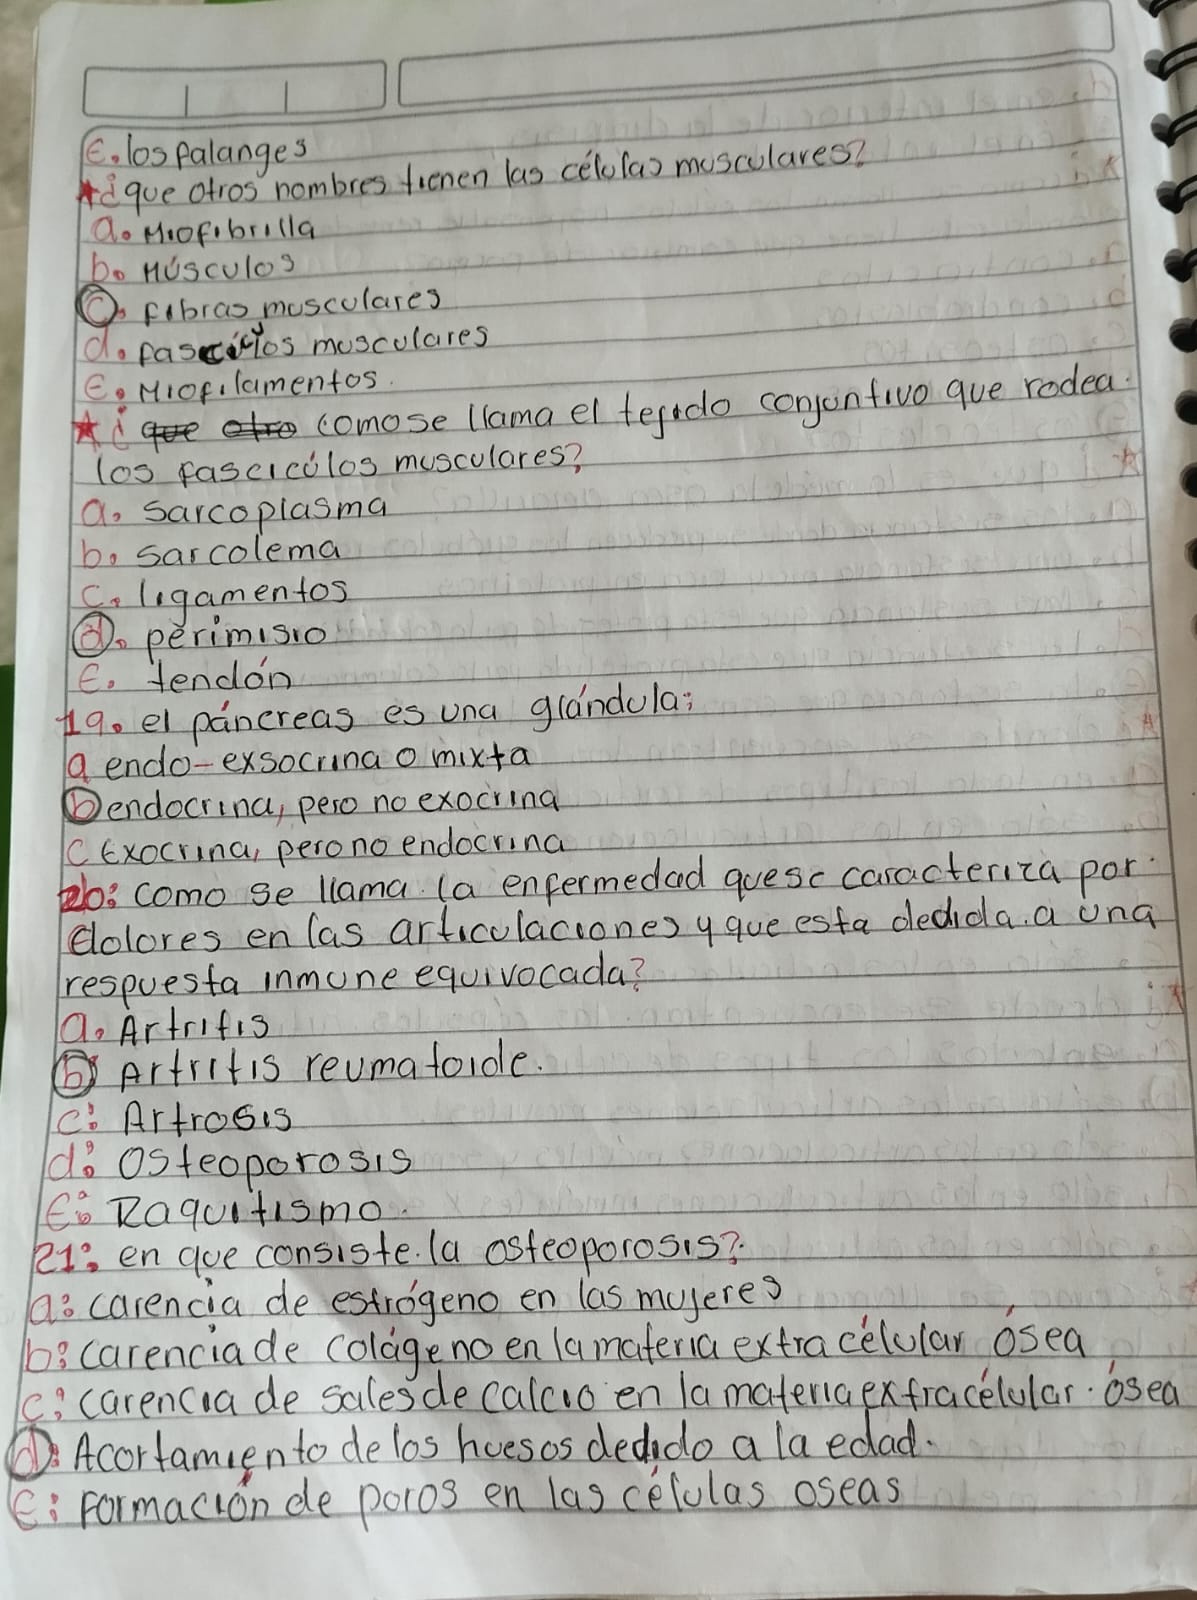 E. los falanges
* ¿que otros nombres tienen las células musculares?
a. Miofibrilla
b. Músculos
c. fibras musculares
d. fascículos musculares
E. Miofilamentos.
* ¿ que otro como se llama el tejido conjuntivo que rodea
los fascicúlos musculares?
a. sarcoplasma
b. sarcolema
c. ligamentos
d. perimisio
E. tendón
19. el páncreas es una glándula:
a endo-exsocrina o mixta
b endocrina, pero no exocrina
C Exocrina, pero no endocrina
20: como se llama la enfermedad que se caracteriza por
dolores en las articulaciones y que esta dedida a una
respuesta inmune equivocada?
a. Artritis
b) Artritis reumatoide.
c: Artrosis
d: Osteoporosis
E: Raquitismo.
21: en que consiste la osteoporosis?
a: carencia de estrógeno en las mujeres
b: carencia de colágeno en la materia extra célular ósea
c: carencia de sales de calcio en la materia extracélular ósea
d: Acortamiento de los huesos dedido a la edad.
E: Formación de poros en las células oseas